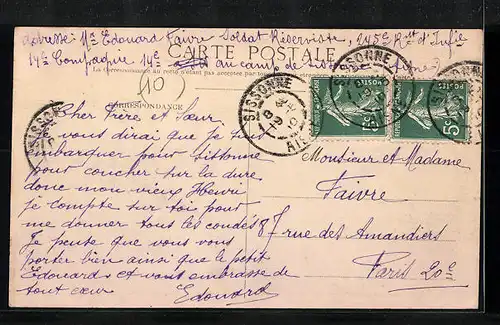 Adresse: Mr Edouard Faivre Soldat Réserviste, 245e Rgt d'Infie
14e Compagnie 14e au camp de
CARTE POSTALE
La Correspondance au recto n'est pas acceptée par tous
(10)
CORRESPONDANCE
SISSONNE
AISNE
5c
5c
Cher Frère et Sœur
vous dirai que je suis
embarquer pour Sissonne
pour coucher sur la dure
donc mon vieux Henri
je compte sur toi pour
me donner tous les coudes
Je pense que vous vous
porter bien ainsi que le petit
Edouard et vous embrasse de
tout cœur
Edouard
Monsieur et Madame
Faivre
87 rue des Amandiers
Paris 20e